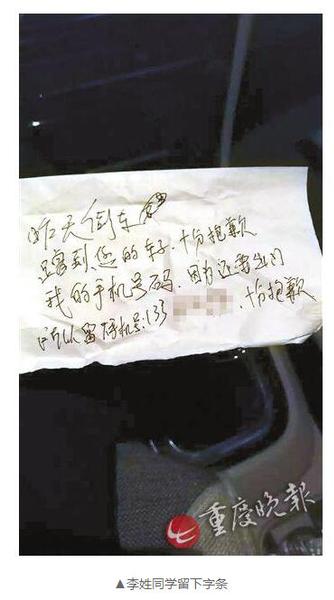 昨天倒车
蹭到您的车.十分抱歉
我的手机号码.因为还要出门
所以留手机号:135 .十分抱歉
重庆晚报
▲李姓同学留下字条